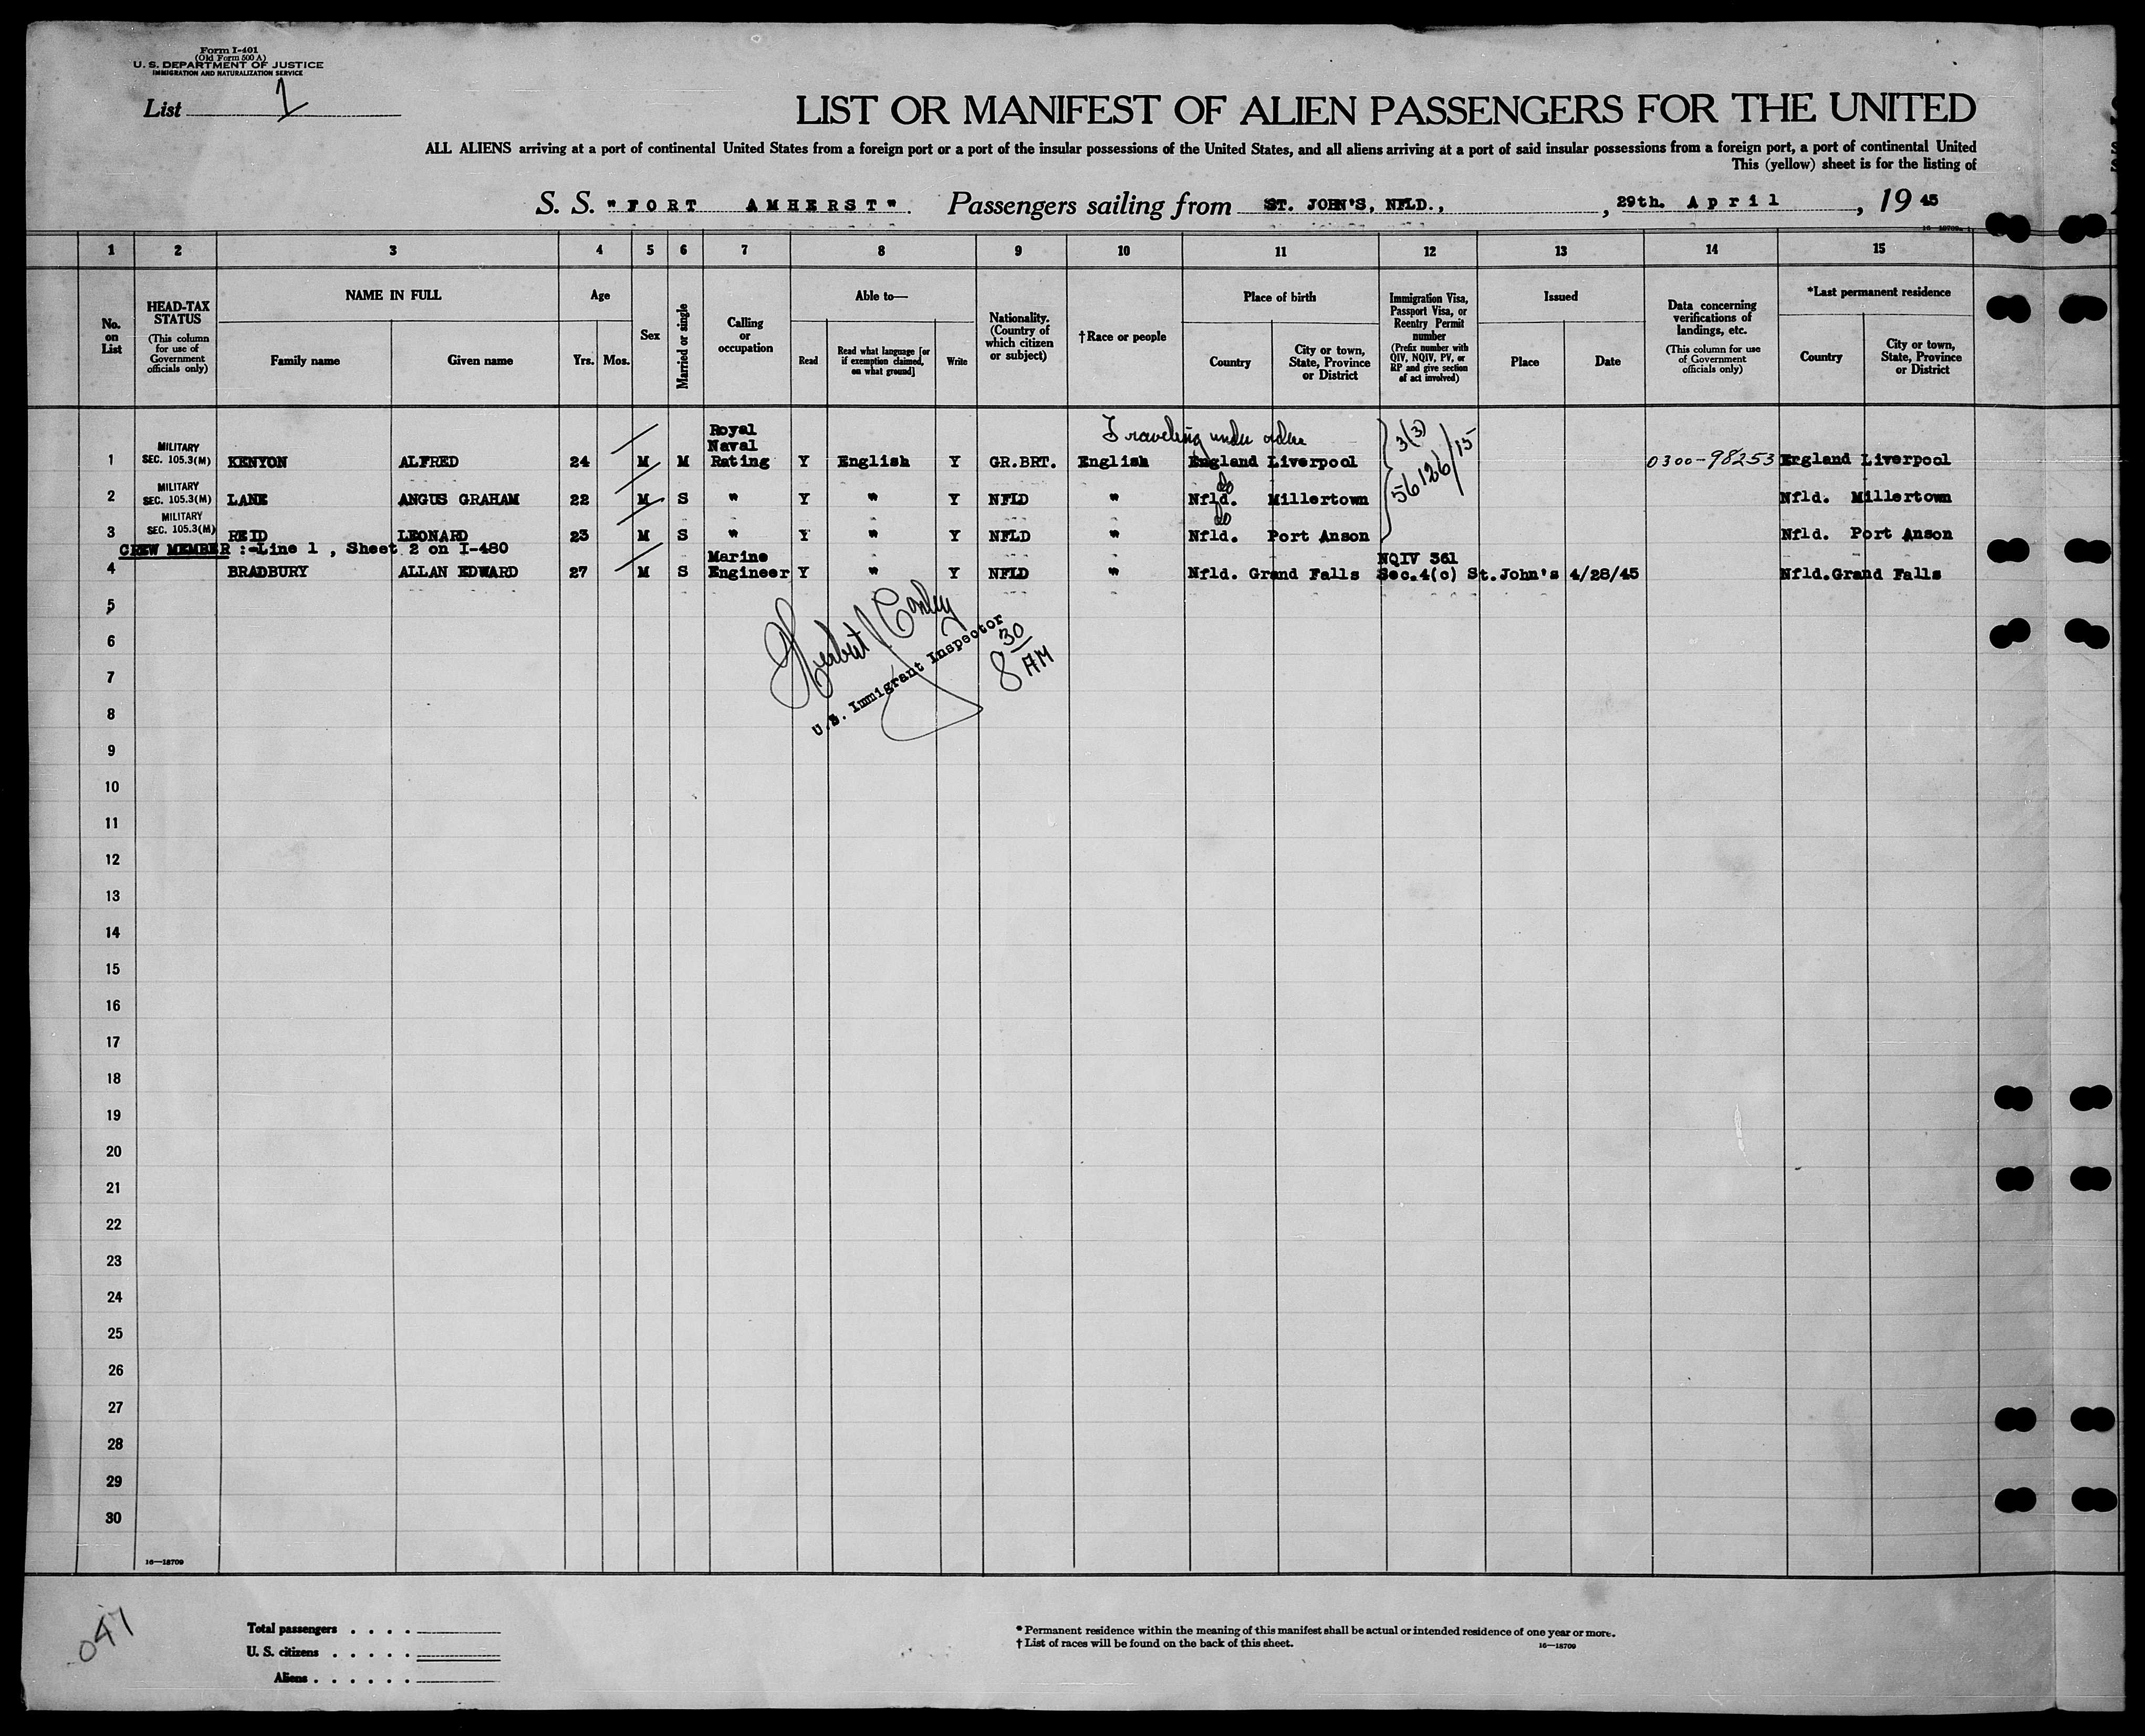 Form I-401
(Old Form 500 A)
U. S. DEPARTMENT OF JUSTICE
IMMIGRATION AND NATURALIZATION SERVICE
List 1
LIST OR MANIFEST OF ALIEN PASSENGERS FOR THE UNITED
ALL ALIENS arriving at a port of continental United States from a foreign port or a port of the insular possessions of the United States, and all aliens arriving at a port of said insular possessions from a foreign port, a port of continental United
This (yellow) sheet is for the listing of
S. S. "FORT AMHERST" Passengers sailing from ST. JOHN'S, NFLD., , 29th. April , 19 45
1 2 3 4 5 6 7 8 9 10 11 12 13 14 15
No. on List
HEAD-TAX STATUS (This column for use of Government officials only)
NAME IN FULL
Family name Given name
Age
Yrs. Mos.
Sex
Married or single
Calling or occupation
Able to—
Read
Read what language [or if exemption claimed, on what ground]
Write
Nationality. (Country of which citizen or subject)
†Race or people
Place of birth
Country
City or town, State, Province or District
Immigration Visa, Passport Visa, or Reentry Permit number (Prefix number with QIV, NQIV, PV, or RP and give section of act involved)
Issued
Place Date
Data concerning verifications of landings, etc. (This column for use of Government officials only)
*Last permanent residence
Country
City or town, State, Province or District
Traveling under orders
3(3)
56126/15
1 MILITARY SEC. 105.3(M) KENYON ALFRED 24 M M Royal Naval Rating Y English Y GR.BRT. English England Liverpool 0300-98253 England Liverpool
do
2 MILITARY SEC. 105.3(M) LANE ANGUS GRAHAM 22 M S " Y " Y NFLD " Nfld. Millertown Nfld. Millertown
do
3 MILITARY SEC. 105.3(M) REID LEONARD 23 M S " Y " Y NFLD " Nfld. Port Anson Nfld. Port Anson
CREW MEMBER :-Line 1 , Sheet 2 on I-480
4 BRADBURY ALLAN EDWARD 27 M S Marine Engineer Y " Y NFLD " Nfld. Grand Falls NQIV 361 Sec.4(c) St.John's 4/28/45 Nfld.Grand Falls
5
Herbert Conley
U.S. Immigrant Inspector
8 30 AM
6
7
8
9
10
11
12
13
14
15
16
17
18
19
20
21
22
23
24
25
26
27
28
29
30
16—18709
041
Total passengers . . . .
U. S. citizens . . . . .
Aliens . . . . . .
* Permanent residence within the meaning of this manifest shall be actual or intended residence of one year or more.
† List of races will be found on the back of this sheet. 16—18709